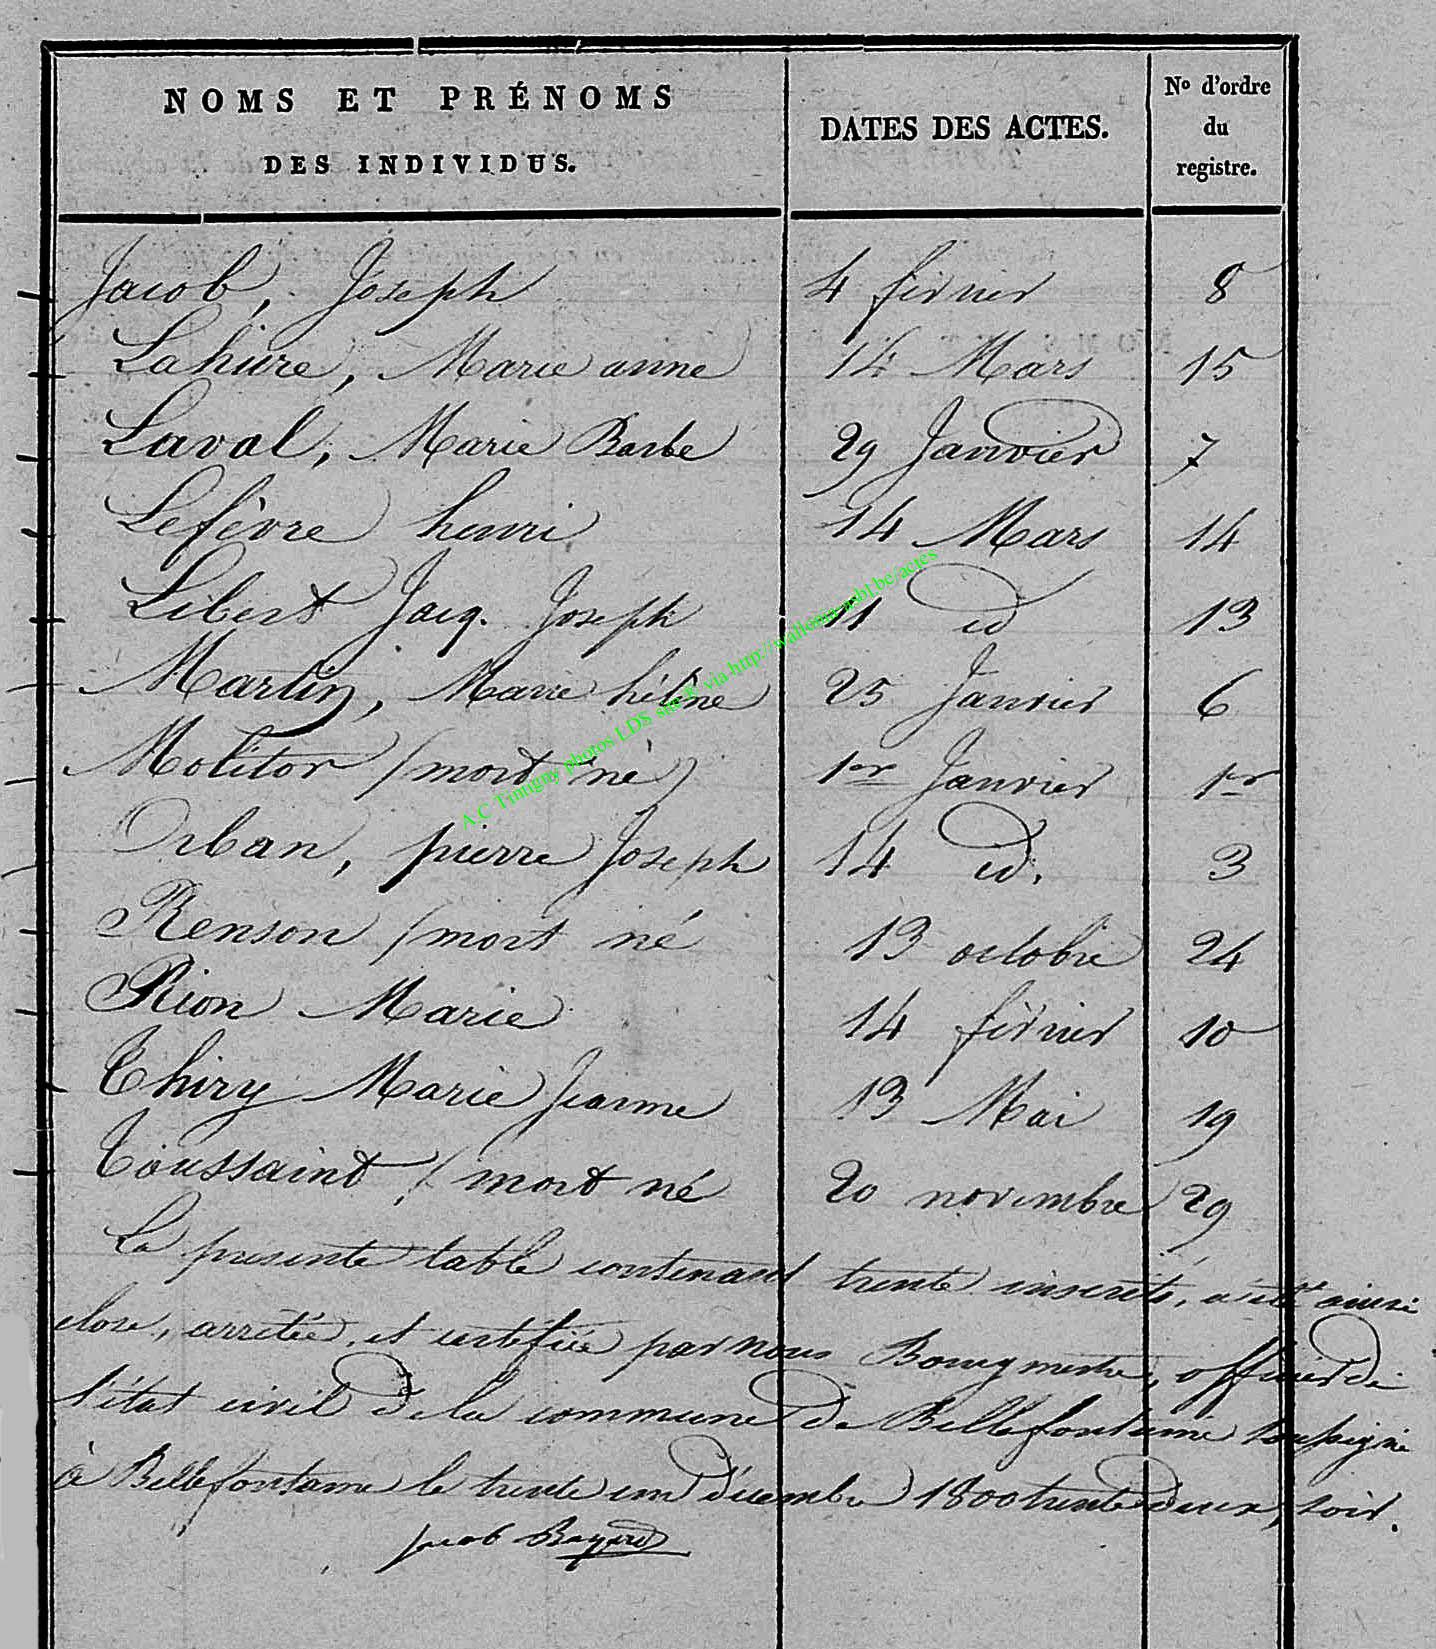 NOMS ET PRÉNOMS DES INDIVIDUS. DATES DES ACTES. No d'ordre du registre.
Jacob, Joseph 4 février 8
Lahure, Marie anne 14 Mars 15
Laval, Marie Barbe 29 Janvier 7
Lefèvre henri 14 Mars 14
Libert Jacq. Joseph 11 id 13
Martin, Marie hélène 25 Janvier 6
Molitor (mort né) 1er Janvier 1er
Orban, pierre Joseph 14 id. 3
Renson (mort né 13 octobre 24
Rion Marie 14 février 10
Thiry Marie Jeanne 13 Mai 19
Toussaint (mort né 20 novembre 29
La presente table contenant trente inscrits, a été ainsi
close, arretée, et certifiée par nous Bourgmestre, officier de
l'état civil de la commune de Bellefontaine soussigné
à Bellefontaine le trente un Décembre 1800trente deux, soir.
jacob Bayard
A.C Tintigny photos LDS via http://wallonia-asbl.be/actes